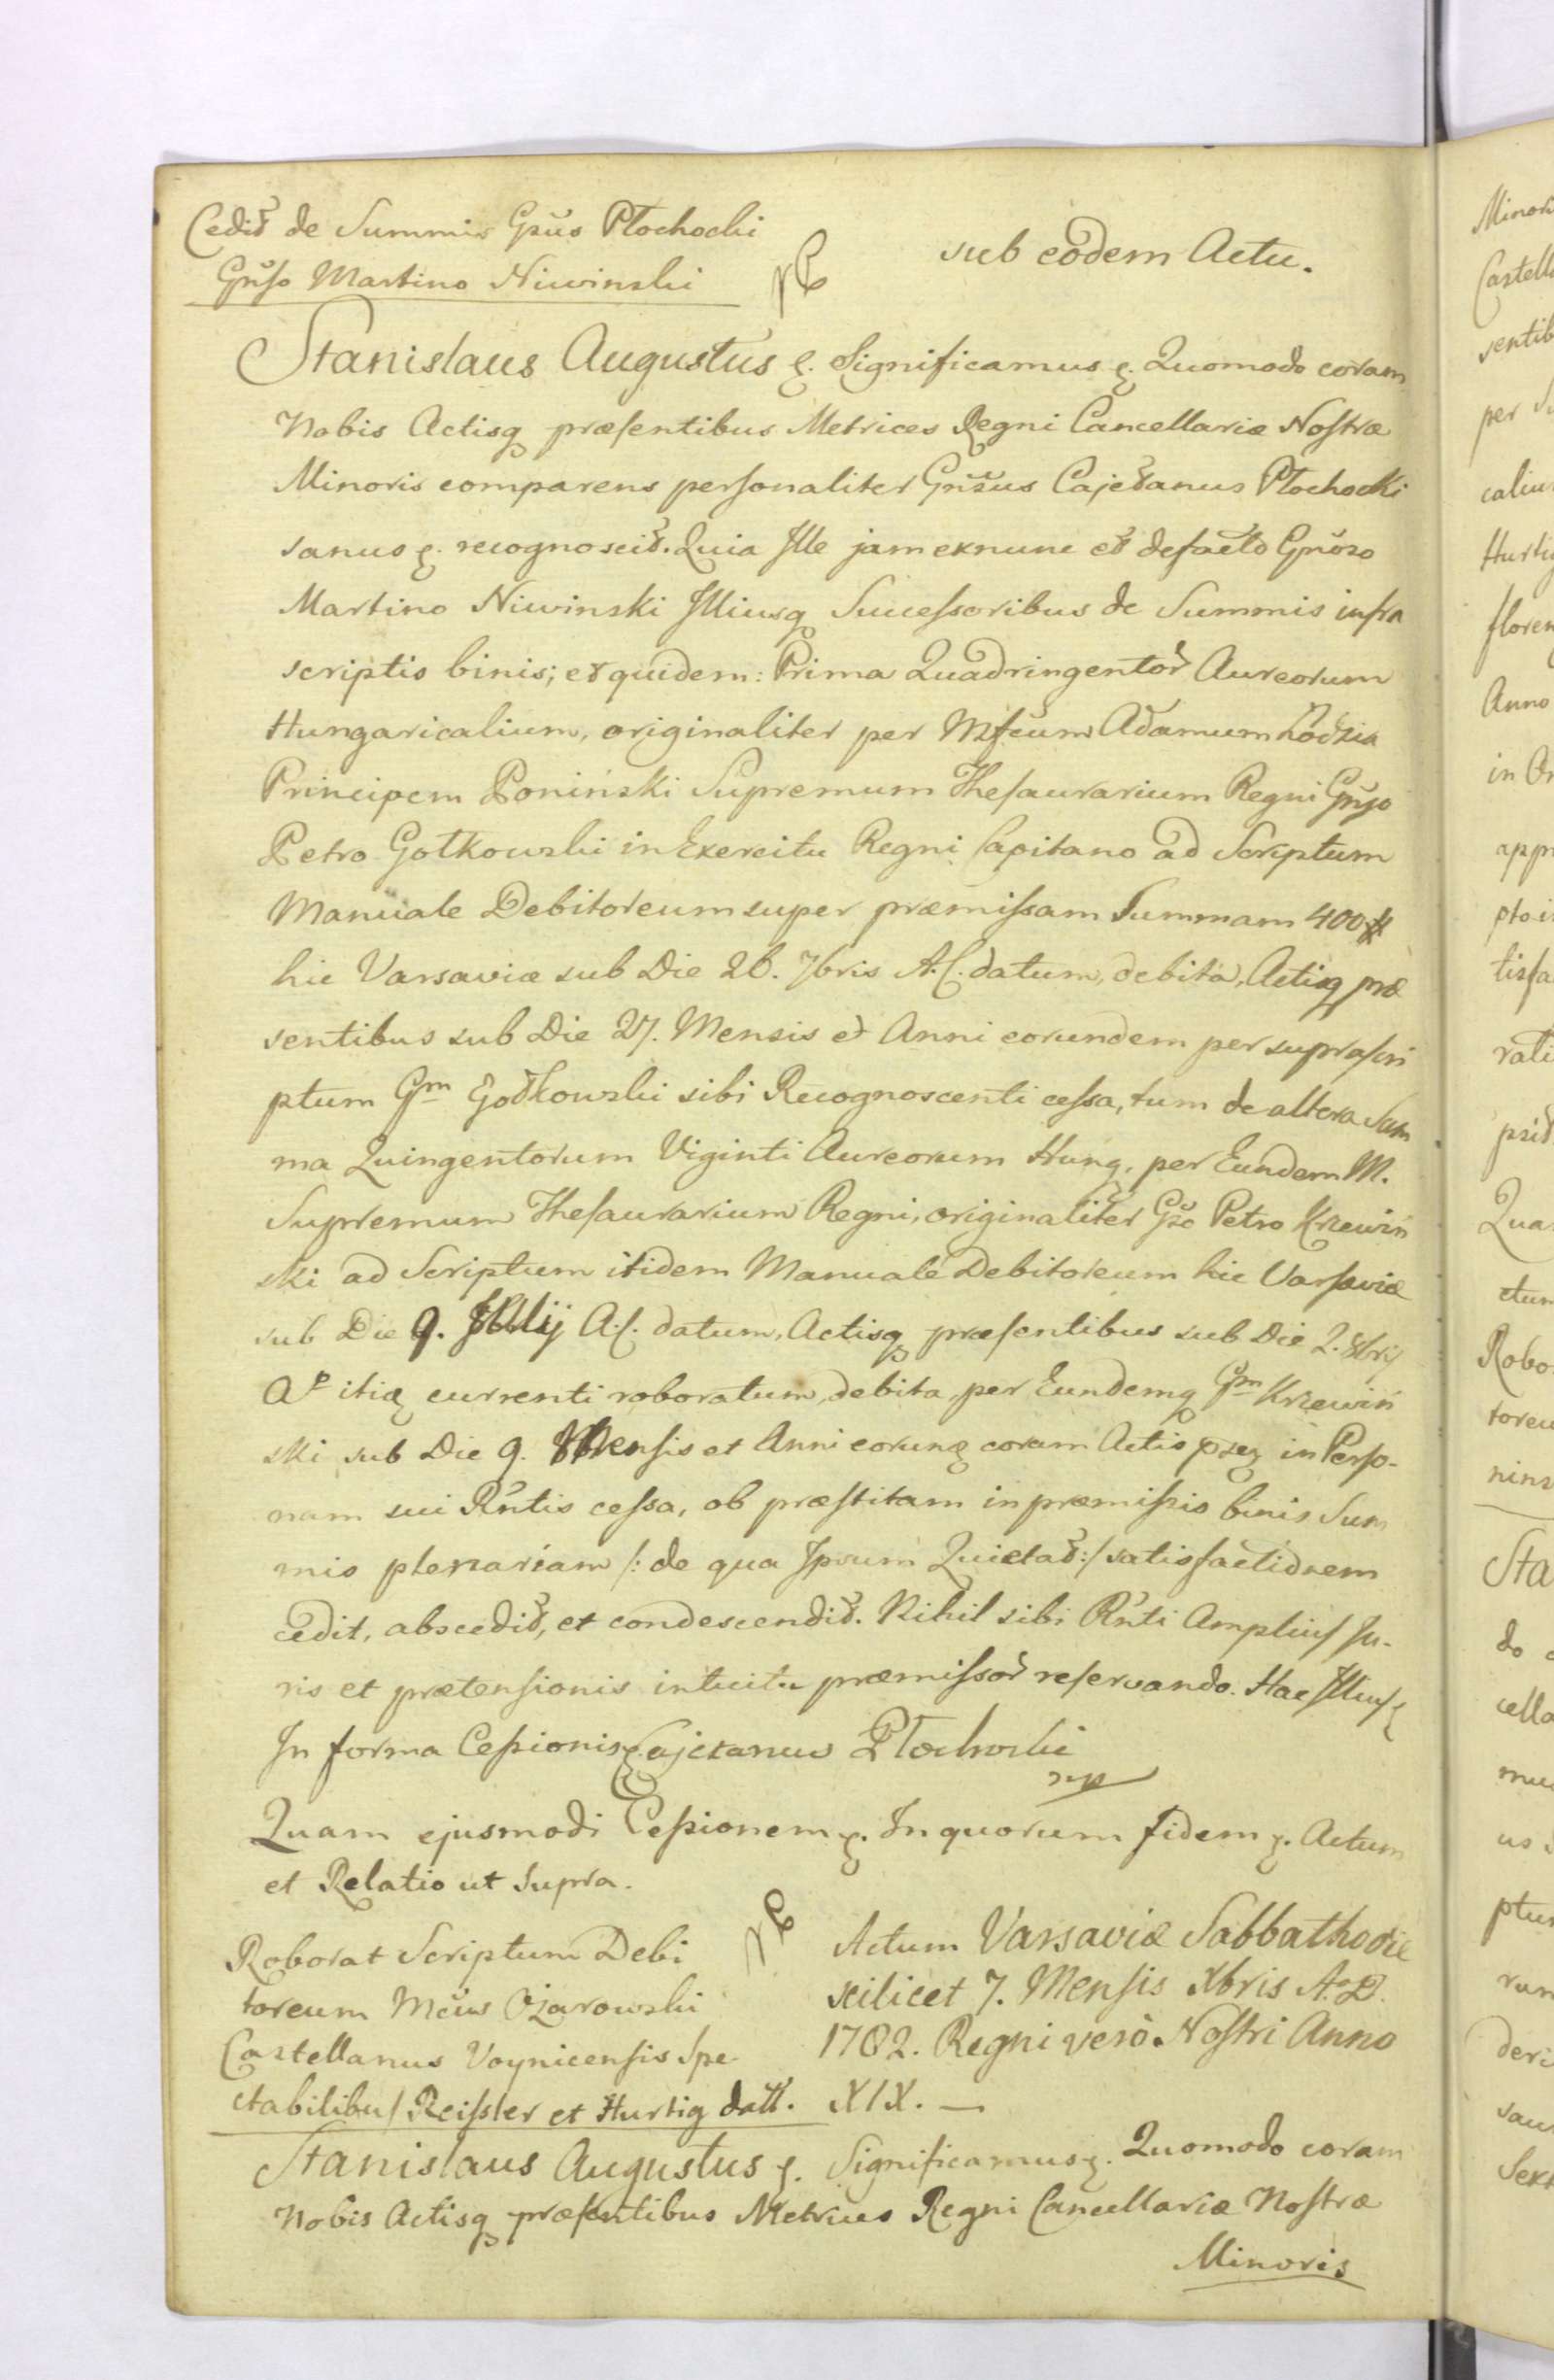 Cedit de Summis Gnsus Płochocki
Gnso Martino Niwinski
sub eodem Actu.
Stanislaus Augustus &. Significamus &. Quomodo coram
Nobis Actisq præsentibus Metrices Regni Cancellariæ Nostræ
Minoris comparens personaliter Gnsus Cajetanus Płochocki
sanus &. recognoscit. Quia Ille jam exnunc et defacto Gnoso
Martino Niwinski Illiusq Successoribus de Summis infra
scriptis binis; et quidem: Prima Quadringentor Aureorum
Hungaricalium, originaliter per Mfcum Adamum Łodzia
Principem Poniński Supremum Thesaurarium Regni Gnso
Petro Gotkowski in Exercitu Regni Capitano ad Scriptum
Manuale Debitoreum super præmissam Summam 400 #
hic Varsaviæ sub Die 26. 7bris A.C. datum, debita, Actisq præ
sentibus sub Die 27. Mensis et Anni eorundem per suprascri
ptum Gm Gotkowski sibi Recognoscenti cessa, tum de altera Sum
ma Quingentorum Viginti Aureorum Hung, per Eundem M.
Supremum Thesaurarium Regni, originaliter Gso Petro Krzewiń
ski ad Scriptum itidem Manuale Debitoreum hic Varsaviæ
sub Die 9. A.C. datum, Actisq præsentibus sub Die 2. 8bris
Ao itiq currenti roboratum, debita, per Eundemq Gm Krzewiń
ski sub Die 9. Mensis et Anni eorunq coram Actis psq in Perso-
nam sui Rntis cessa, ob præstitam in præmissis binis Sum
mis plenariam /: de qua Ipsum Quietat :/ satisfactionem
cedit, abscedit, et condescendit. Nihil sibi Rnti Amplius Ju-
ris et prætensionis intuitu præmissor reservando. Hac Illius &
In forma Cessionis &. Cajetanus Płochocki
mp
Quam ejusmodi Cessionem &. In quorum fidem &. Actum
et Relatio ut supra.
Roborat Scriptum Debi
toreum Mcus Ożarowski
Castellanus Voynicensis Spe
ctabilibus Reissler et Hurtig datt.
Actum Varsaviæ Sabbatho die
scilicet 7. Mensis Xbris A.D.
1782. Regni vero Nostri Anno
XIX. —
Stanislaus Augustus &. Significamus &. Quomodo coram
Nobis Actisq præsentibus Metrices Regni Cancellariæ Nostræ
Minoris